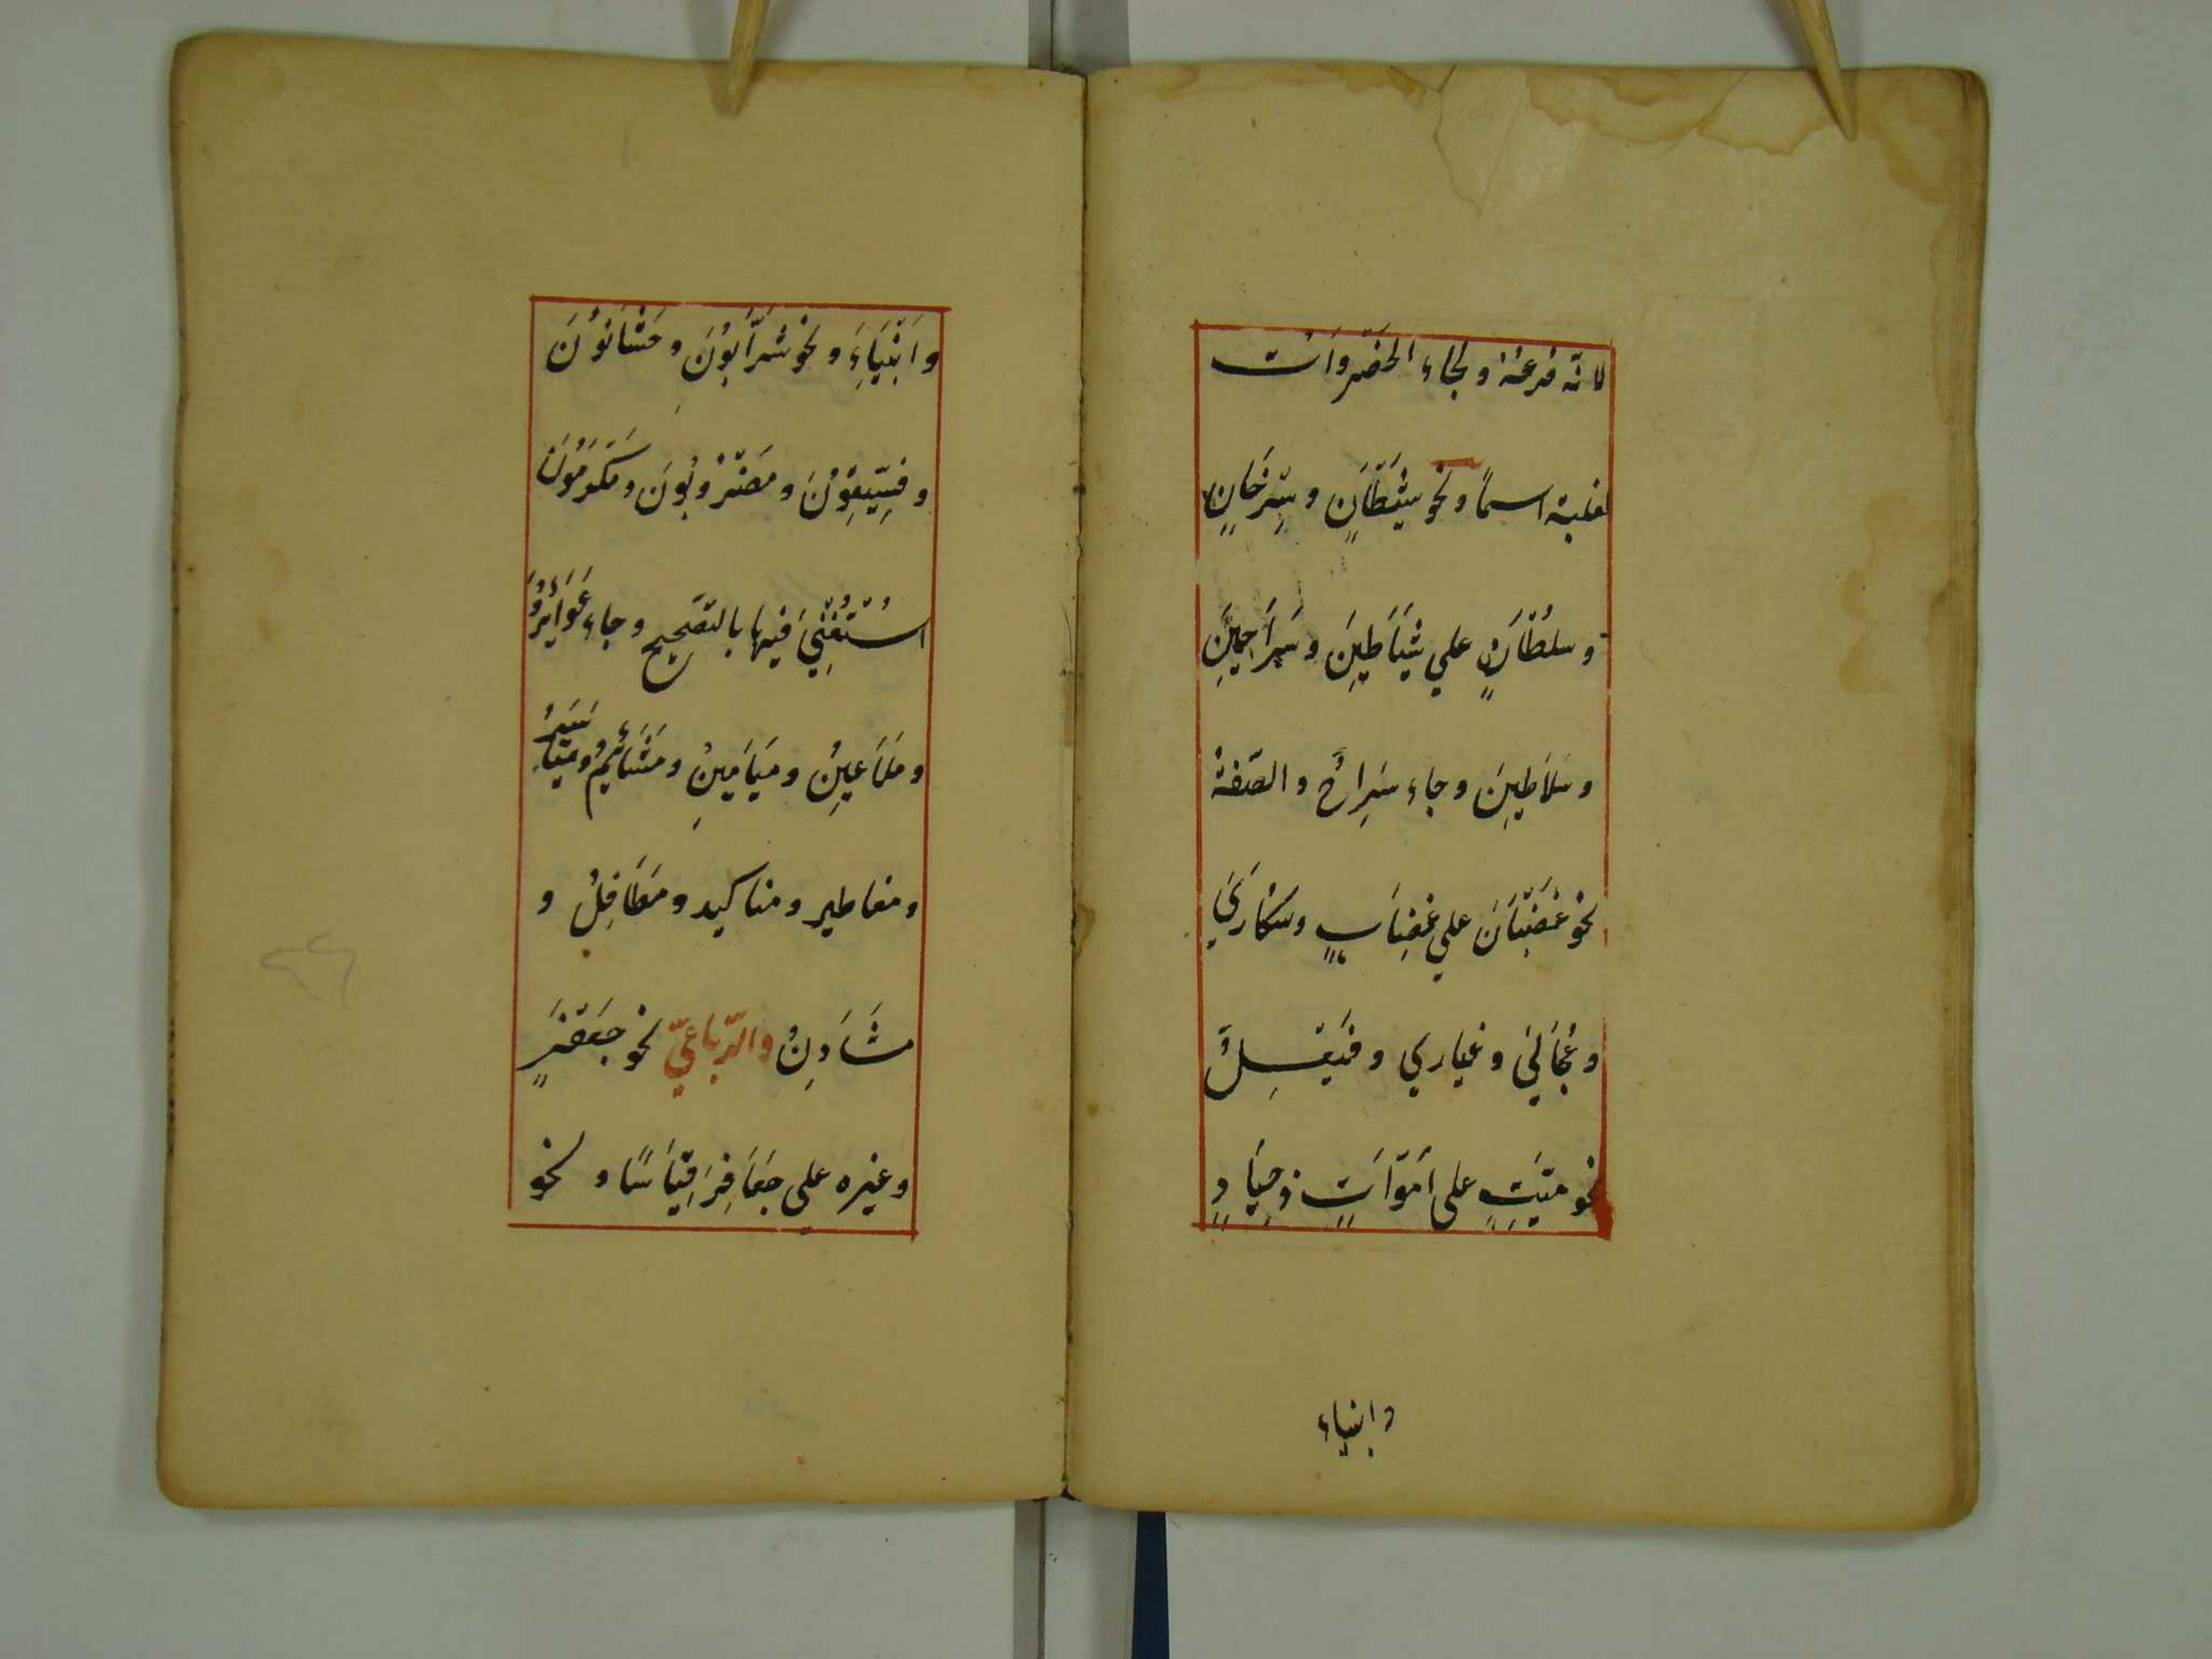 لانه فرعه ولجاء الخضروات
لغلبته اسمًا ونحو شَيْطَانٍ وسِرْحَانٍ
وسلُطْانٍ علي شَيَاطِينَ وسَرَاحِينَ
وسَلاَطِينَ وجاء سِرَاحٌ والصّفة
نحو غَضْبَانَ علي غِضَابٍ وسُكَارَيٰ
وعُجَاليٰ وغياري وفَيْعِلٌ
نحو ميّتٍ على اَمْوَاتٍ وجِيَادٍ
وابنياء
واَبْنِيَاءَ ونحو شَرَّابُونَ وحَسَّانُونَ
وفِسِّيقُونَ ومَضْرُوبُونَ ومُكْرَمُونَ
اسْتُغْنِيَ فيها بالتّصحيح وجاء عَوَاوِيرُ
ومَلَاعِينُ ومَيَامِينُ ومَشَائِيمُ ومَيَاسِيرُ
ومفاطير ومناكير ومَطَافِلُ و
مَشَادِنُ والرّباعيّ نحو جَعْفَرٍ
وغيره على جَعَافِرَ قِيَاسًا ونحو